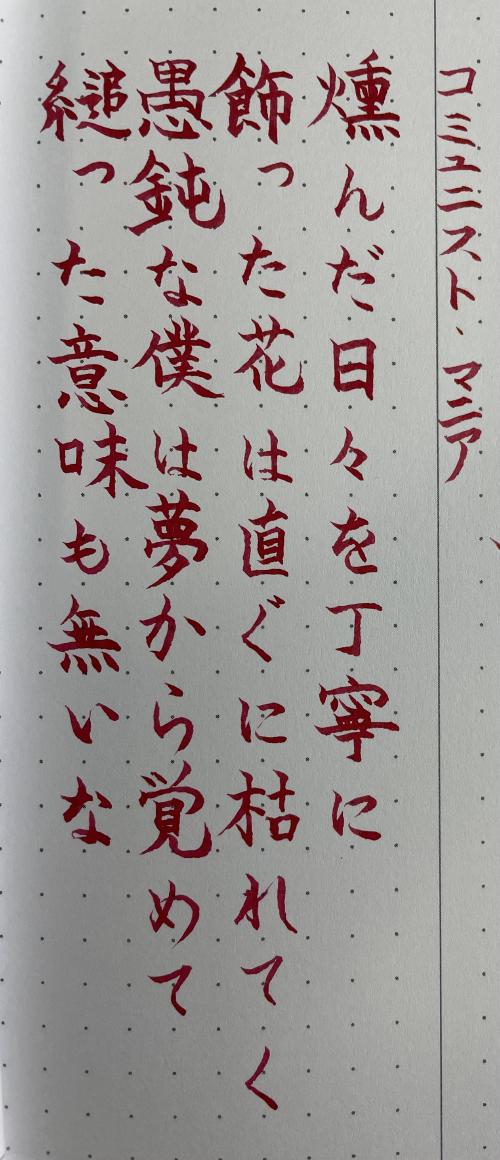 コミュニスト・マニア
燻んだ日々を丁寧に
飾った花は直ぐに枯れてく
愚鈍な僕は夢から覚めて
縋った意味も無いな